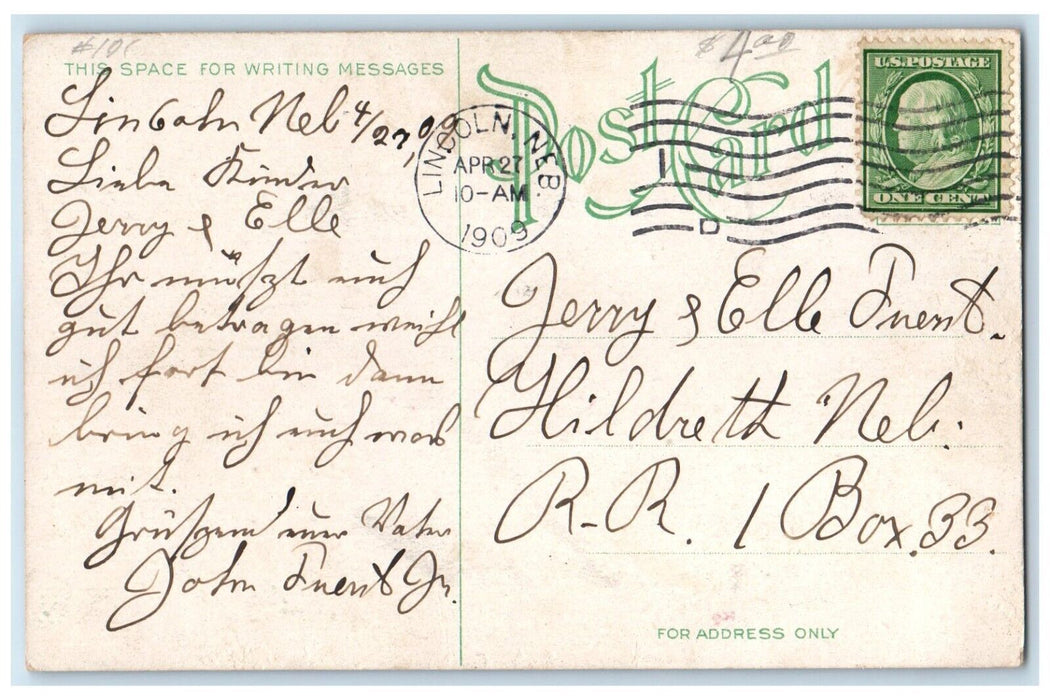 #10
$4.00
THIS SPACE FOR WRITING MESSAGES
Post Card
U.S. POSTAGE
ONE CENT
LINCOLN, NEB.
APR 27
10-AM
1909
1
D
Lincoln Neb 4/27, 09
Liebe Kinder
Jerry & Elle
Ihr müßt euch
gut betragen weihl
ich fort bin dann
bring ich euch was
mit.
Grüßend euer Vater
John Fuent Jr.
Jerry & Elle Fuent.
Hildreth Neb.
R-R. 1 Box. 33.
FOR ADDRESS ONLY